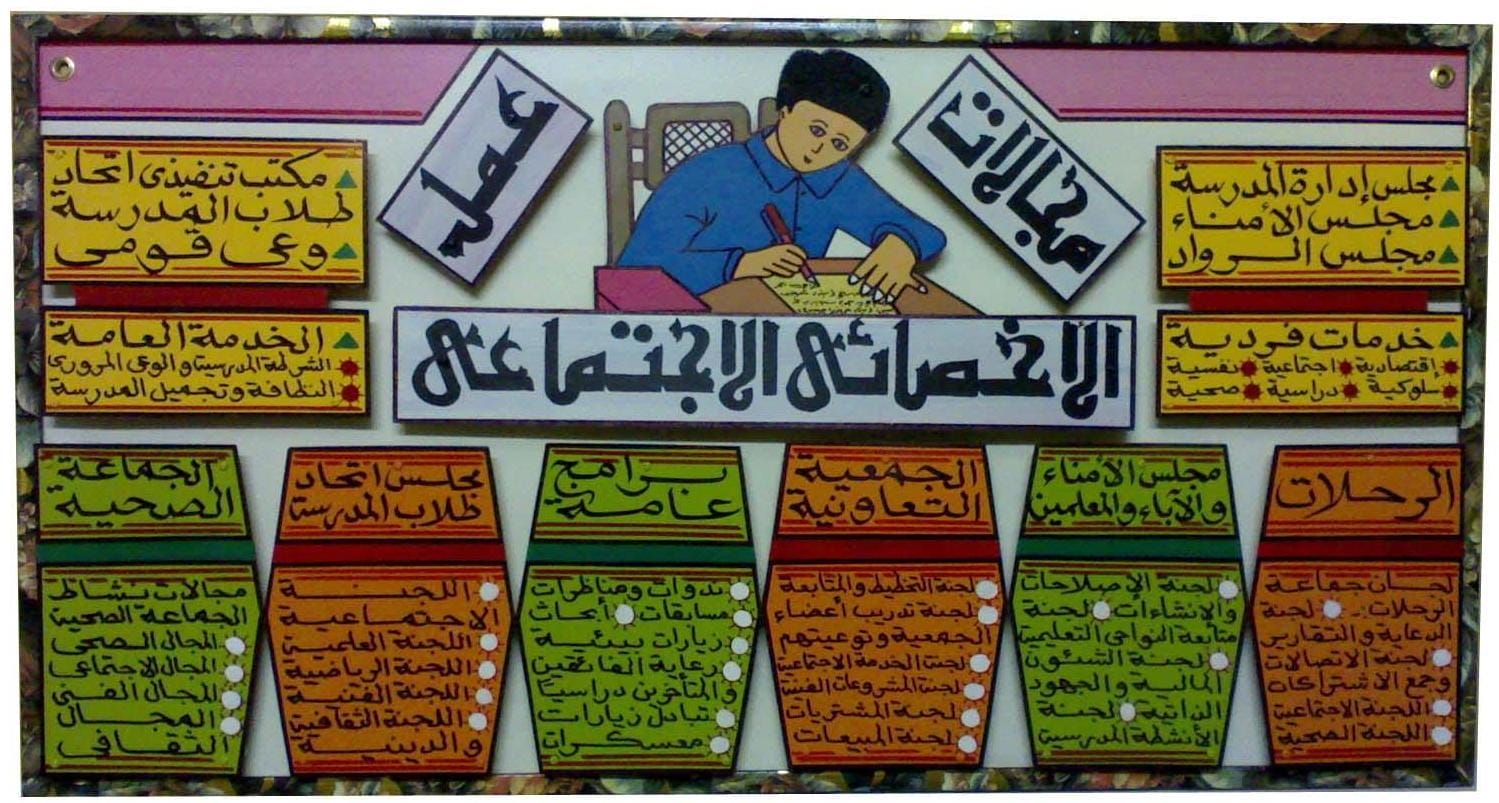 مجالات
عمل
الإخصائى الاجتماعى
مجلس إدارة المدرسة
مجلس الأمناء
مجلس الرواد
خدمات فردية
إقتصادية اجتماعية نفسية
سلوكية دراسية صحية
مكتب تنفيذى اتحاد
طلاب المدرسة
وعى قومى
الخدمة العامة
الشرطة المدرسية والوعى المرورى
النظافة وتجميل المدرسة
الرحلات
لجان جماعة
الرحلات: لجنة
الدعاية والتقارير
لجنة الاتصالات
وجمع الاشتراكات
اللجنة الاجتماعية
اللجنة الصحية
مجلس الأمناء
والآباء والمعلمين
لجنة الإصلاحات
والإنشاءات لجنة
متابعة النواحى التعليمية
لجنة الشئون
المالية والجهود
الذاتية لجنة
الأنشطة المدرسية
الجمعية
التعاونية
لجنة التخطيط والمتابعة
لجنة تدريب أعضاء
الجمعية وتوعيتهم
لجنة الخدمة الاجتماعية
لجنة المشروعات الفنية
لجنة المشتريات
لجنة المبيعات
برامج
عامة
ندوات ومناظرات
مسابقات أبحاث
زيارات بيئية
رعاية الفائقين
والمتأخرين دراسيا
تبادل زيارات
معسكرات
مجلس اتحاد
طلاب المدرسة
اللجنة
الاجتماعية
اللجنة العلمية
اللجنة الرياضية
اللجنة الفنية
اللجنة الثقافية
والدينية
الجماعة
الصحية
مجالات نشاط
الجماعة الصحية
المجال الصحى
المجال الاجتماعى
المجال الفنى
المجال
الثقافى